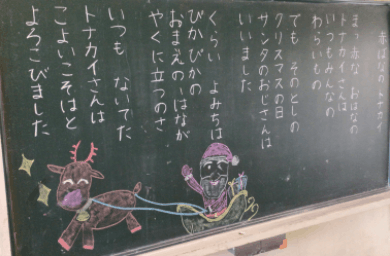 赤はなの トナカイ
まっ赤な おはなの
トナカイさんは
いつもみんなの
わらいもの
でも そのとしの
クリスマスの日
サンタのおじさんは
いいました
くらい よみちは
ぴかぴかの
おまえの はなが
やくに立つのさ
いつも ないてた
トナカイさんは
こよいこそはと
よろこびました